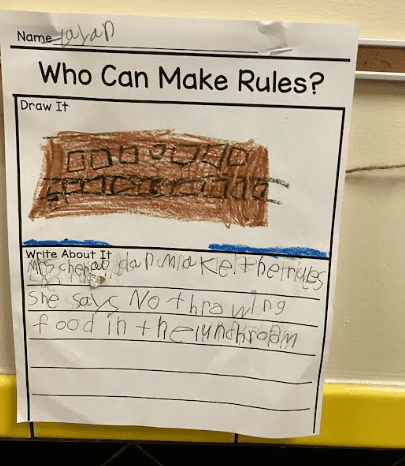 Name yayan
Who Can Make Rules?
Draw It
Write About It
can make the rules
she says No thrawing
food in the lunchroom